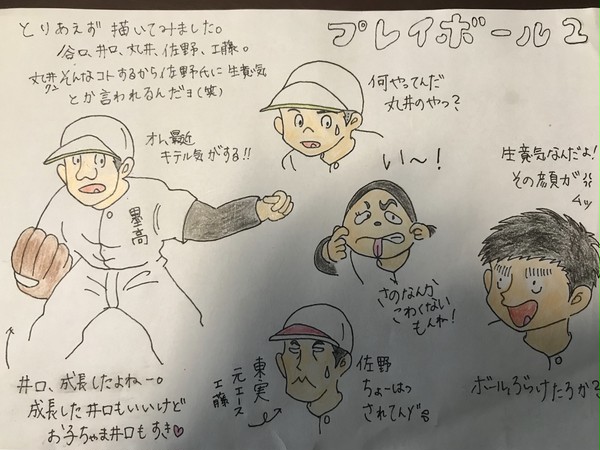 とりあえず描いてみました。
谷口、井口、丸井、佐野、工藤。
丸井クンそんなコトするから佐野氏に生意気
とか言われるんだョ(笑)
プレイボール2
何やってんだ
丸井のやつ?
オレ最近
キテル気がする!!
い〜!
生意気なんだよ!
その顔が
ムッ
墨高
さのなんか
こわくない
もんね!
東実
元エース
工藤
佐野
ちょーはつ
されてんぞ
井口、成長したよねー。
成長した井口もいいけど
お子ちゃま井口もすき♡
ボールぶつけたろか?